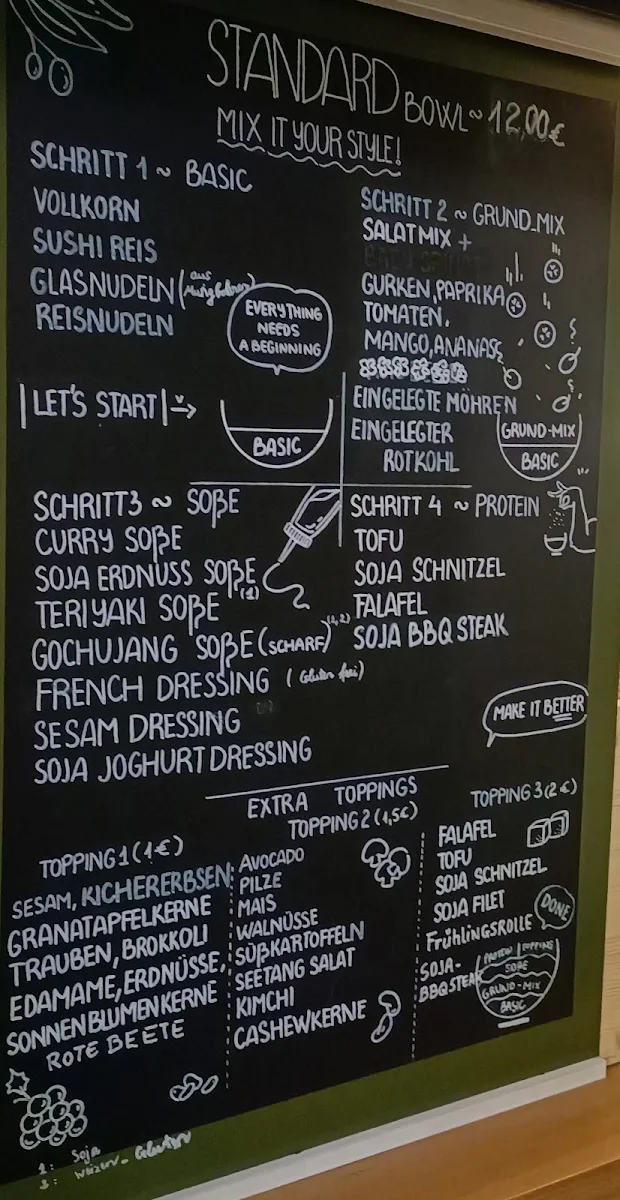 STANDARD BOWL~12,00€
MIX IT YOUR STYLE!
SCHRITT 1 ~ BASIC
VOLLKORN
SUSHI REIS
GLASNUDELN (aus
REISNUDELN
EVERYTHING
NEEDS
A BEGINNING
|LET'S START|→
BASIC
SCHRITT 2 ~ GRUND_MIX
SALATMIX +
GURKEN, PAPRIKA
TOMATEN,
MANGO, ANANAS
EINGELEGTE MÖHREN
EINGELEGTER
ROTKOHL
GRUND-MIX
BASIC
SCHRITT3 ~ SOßE
CURRY SOßE
SOJA ERDNUSS SOßE
TERIYAKI SOßE (1)
GOCHUJANG SOßE (SCHARF) (1,2)
FRENCH DRESSING (Gluten frei)
SESAM DRESSING
SOJA JOGHURT DRESSING
SCHRITT 4 ~ PROTEIN
TOFU
SOJA SCHNITZEL
FALAFEL
SOJA BBQ STEAK
MAKE IT BETTER
EXTRA TOPPINGS
TOPPING 1 (1€)
SESAM, KICHERERBSEN
GRANATAPFELKERNE
TRAUBEN, BROKKOLI
EDAMAME, ERDNÜSSE,
SONNENBLUMENKERNE
ROTE BEETE
TOPPING 2 (1,5€)
AVOCADO
PILZE
MAIS
WALNÜSSE
SÜßKARTOFFELN
SEETANG SALAT
KIMCHI
CASHEWKERNE
TOPPING 3 (2€)
FALAFEL
TOFU
SOJA SCHNITZEL
SOJA FILET
FRÜHLINGSROLLE
SOJA-
BBQ STEAK
DONE
PROTEIN | TOPPING
SOßE
GRUND-MIX
BASIC
1: Soja
2: Weizen- Gluten